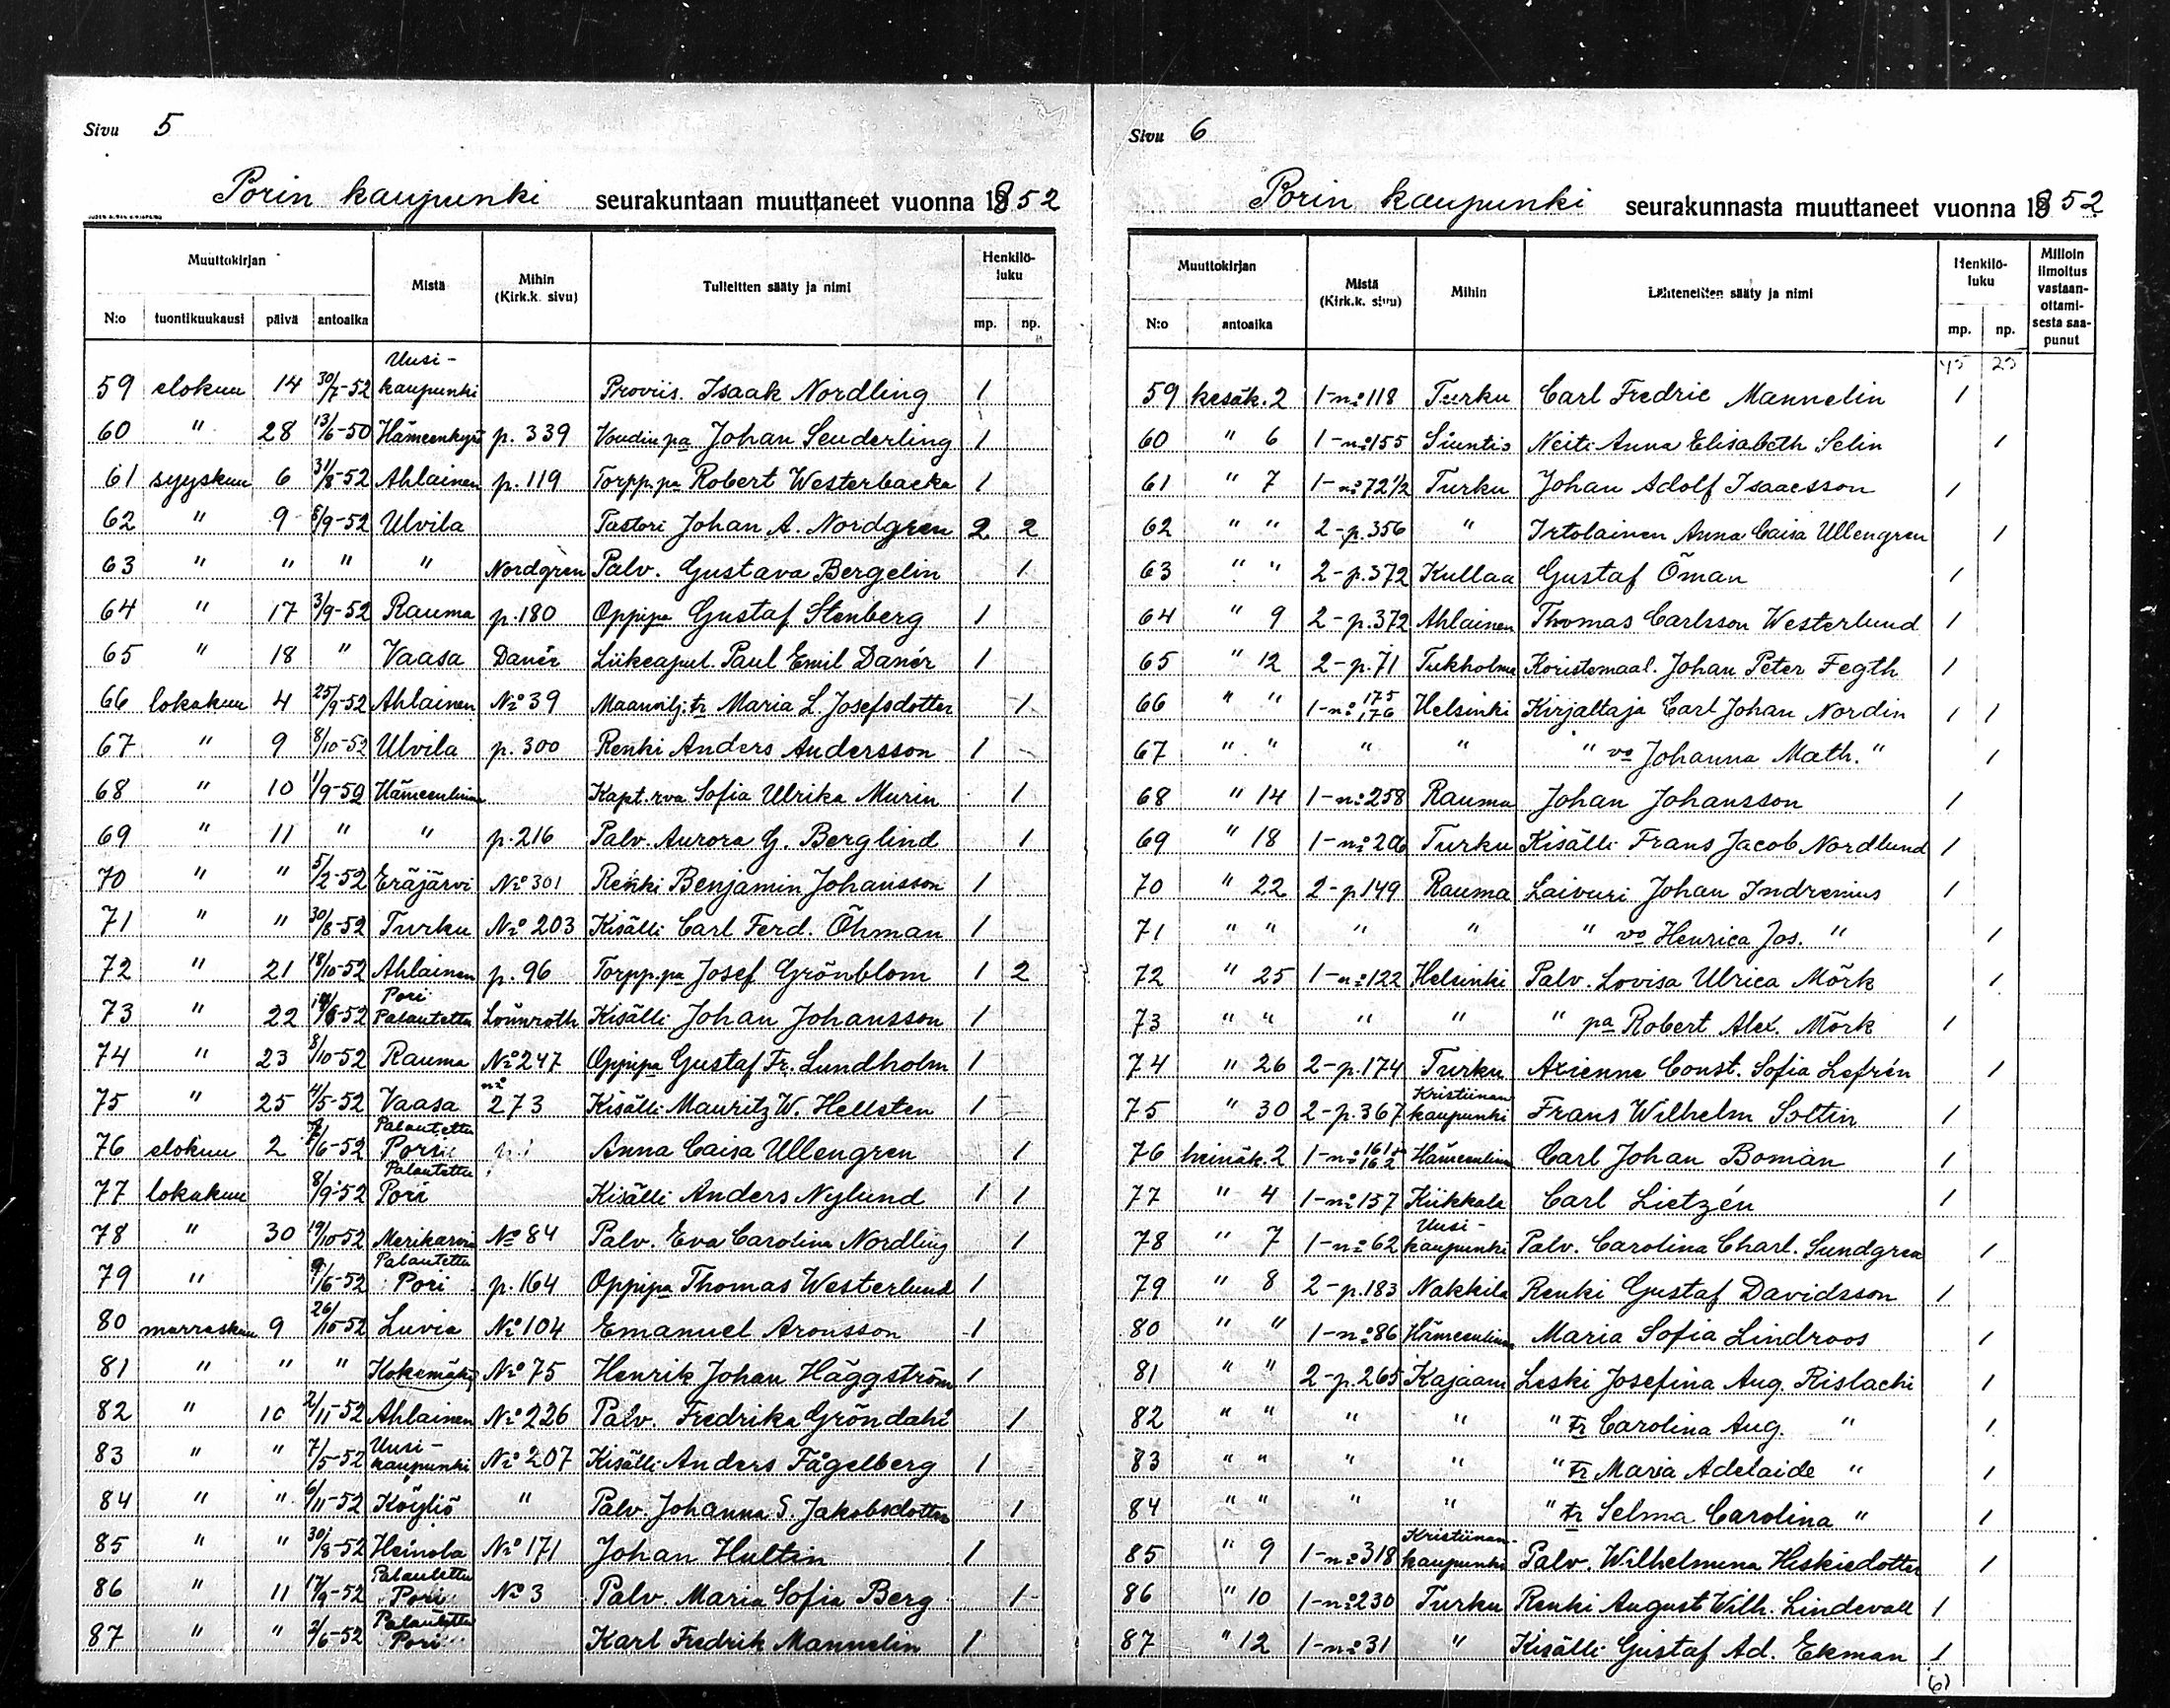 Sivu 5
Porin kaupunki seurakuntaan muuttaneet vuonna 1852
Muuttokirjan Mistä Mihin (Kirk.k. sivu) Tulleitten sääty ja nimi Henkilö-luku
N:o tuontikuukausi päivä antoaika mp. np.
59 elokuu 14 30/7-52 Uusi-kaupunki Proviis. Isaak Nordling 1
60 " 28 13/6-50 Hämeenkyrö p. 339 Voudin pa Johan Seuderling 1
61 syyskuu 6 31/8-52 Ahlainen p. 119 Torpp.pa Robert Westerbacka 1
62 " 9 /9-52 Ulvila Pastori Johan A. Nordgren 2 2
63 " " " " Nordgren Palv. Gustava Bergelin 1
64 " 17 3/9-52 Rauma p. 180 Oppipa Gustaf Stenberg 1
65 " 18 " Vaasa Danér Liikeapul. Paul Emil Danér 1
66 lokakuu 4 25/9-52 Ahlainen No 39 Maanvilj. tr Maria L. Josefsdotter 1
67 " 9 8/10-52 Ulvila p. 300 Renki Anders Andersson 1
68 " 10 1/9-52 Hämeenlinna Kapt. rva Sofia Ulrika Murin 1
69 " 11 " " p. 216 Palv. Aurora G. Berglind 1
70 " " 5/2-52 Eräjärvi No 301 Renki Benjamin Johansson 1
71 " " 30/8-52 Turku No 203 Kisälli Carl Ferd. Öhman 1
72 " 21 18/10-52 Ahlainen p. 96 Torpp.pa Josef Grönblom 1 2
73 " 22 /6-52 Pori Palautettu Lönnroth Kisälli Johan Johansson 1
74 " 23 8/10-52 Rauma No 247 Oppipa Gustaf Fr. Lundholm 1
75 " 25 4/5-52 Vaasa no 273 Kisälli Mauritz W. Hellsten 1
76 elokuu 2 /6-52 Palautettu Pori Anna Caisa Ullengren 1
77 lokakuu 8/9-52 Palautettu Pori Kisälli Anders Nylund 1 1
78 " 30 19/10-52 Merikarvia No 84 Palv. Eva Carolina Nordling 1
79 " 9/6-52 Palautettu Pori p. 164 Oppipa Thomas Westerlund 1
80 marraskuu 9 26/10-52 Luvia No 104 Emanuel Aronsson 1
81 " " " Kokemäki No 75 Henrik Johan Häggström 1
82 " 10 2/11-52 Ahlainen No 226 Palv. Fredrika Gröndahl 1
83 " " 7/5-52 Uusi-kaupunki No 207 Kisälli Anders Fågelberg 1
84 " " 6/11-52 Köyliö " Palv. Johanna S. Jakobsdotter 1
85 " " 30/8-52 Heinola No 171 Johan Hultin 1
86 " 11 17/9-52 Palautettu Pori No 3 Palv. Maria Sofia Berg 1
87 " " 2/6-52 Palautettu Pori Karl Fredrik Mannelin 1
Sivu 6
Porin kaupunki seurakunnasta muuttaneet vuonna 1852
Muuttokirjan Mistä (Kirk.k. sivu) Mihin Lähteneitten sääty ja nimi Henkilö-luku Milloin ilmoitus vastaan-ottami-sesta saa-punut
N:o antoaika mp. np.
45 25
59 kesäk. 2 1-no 118 Turku Carl Fredric Mannelin 1
60 " 6 1-no 155 Siuntio Neiti Anna Elisabeth Selin 1
61 " 7 1-no 72 1/2 Turku Johan Adolf Isaacsson 1
62 " " 2-p. 356 " Irtolainen Anna Caisa Ullengren 1
63 " " 2-p. 372 Kullaa Gustaf Öman 1
64 " 9 2-p. 372 Ahlainen Thomas Carlsson Westerlund 1
65 " 12 2-p. 71 Tukholma Koristemaal. Johan Peter Fegth 1
66 " " 1-no 175 176 Helsinki Kirjaltaja Carl Johan Nordin 1 1
67 " " " " " vo Johanna Math. " 1
68 " 14 1-no 258 Rauma Johan Johansson 1
69 " 18 1-no Turku Kisälli Frans Jacob Nordlund 1
70 " 22 2-p 149 Rauma Laivuri Johan Indrenius 1
71 " " " " " vo Henrica Jos. " 1
72 " 25 1-no 122 Helsinki Palv. Lovisa Ulrica Mörk 1
73 " " " " " pa Robert Alex. Mörk 1
74 " 26 2-p. 174 Turku Axienne Const. Sofia Lefrén 1
75 " 30 2-p. 367 Kristiinan kaupunki Frans Wilhelm Soltin 1
76 heinäk. 2 1-no 161 162 Hämeenlinna Carl Johan Boman 1
77 " 4 1-no 157 Kiikkala Carl Lietzén 1
78 " 7 1-no 62 Uusi-kaupunki Palv. Carolina Charl. Sundgren 1
79 " 8 2-p. 183 Nakkila Renki Gustaf Davidsson 1
80 " " 1-no 86 Hämeenlinna Maria Sofia Lindroos 1
81 " " 2-p. 265 Kajaani Leski Josefina Aug. Rislachi 1
82 " " " " " Tr Carolina Aug. " 1
83 " " " " " Tr Maria Adelaide " 1
84 " " " " " tr Selma Carolina " 1
85 " 9 1-no 318 Kristiinan-kaupunki Palv. Wilhelmina Hiskiedotter 1
86 " 10 1-no 230 Turku Renki August Wilh. Lindevall 1
87 " 12 1-no 31 " Kisälli Gustaf Ad. Ekman 1